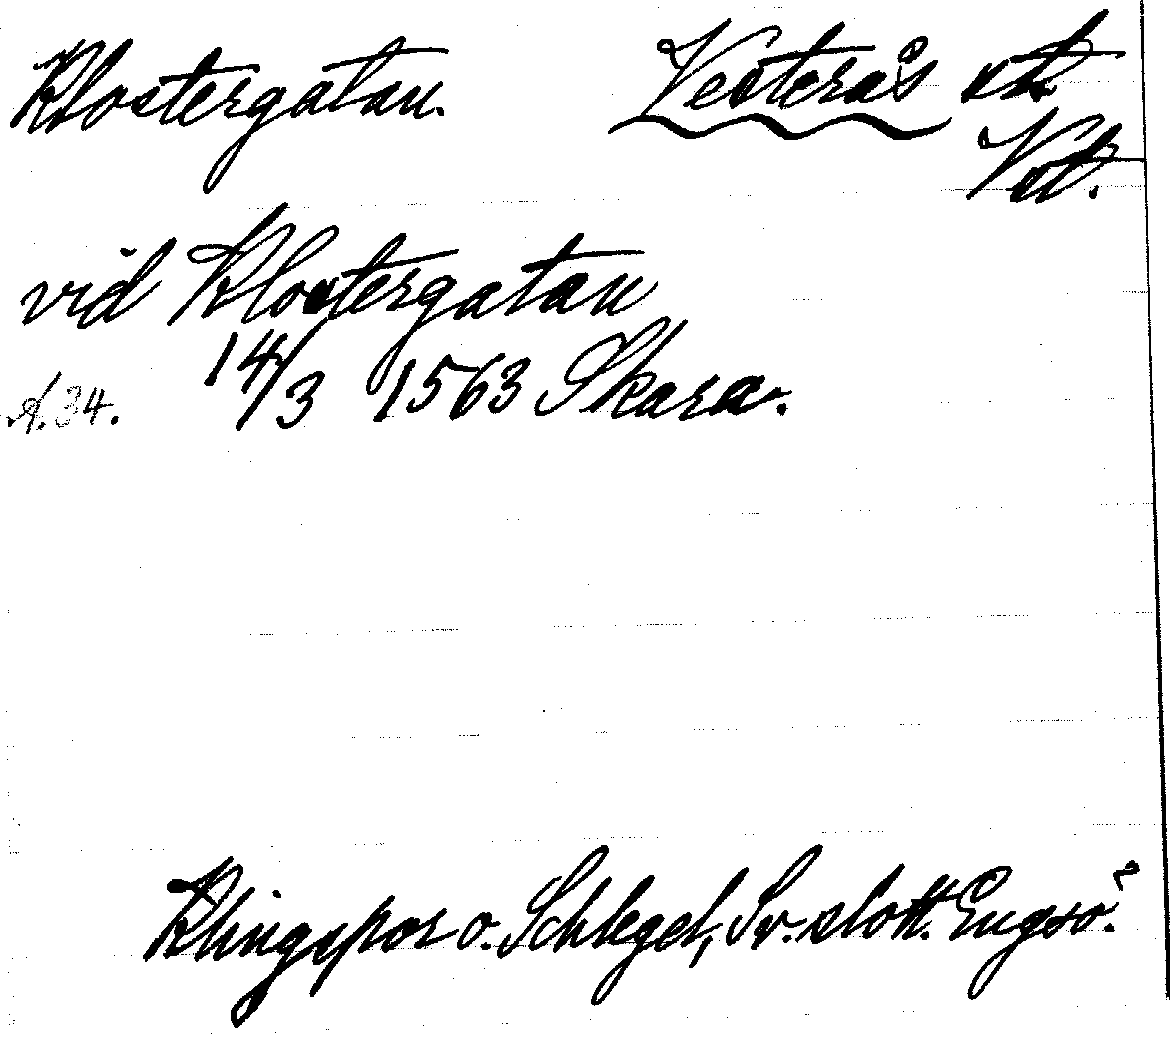 Klostergatan. Vesterås st.
Vst.
vid Klostergatan
A. 34. 14/3 1563 Skara.
Klingspor o. Schlegel, Sv. slott. Engsö.